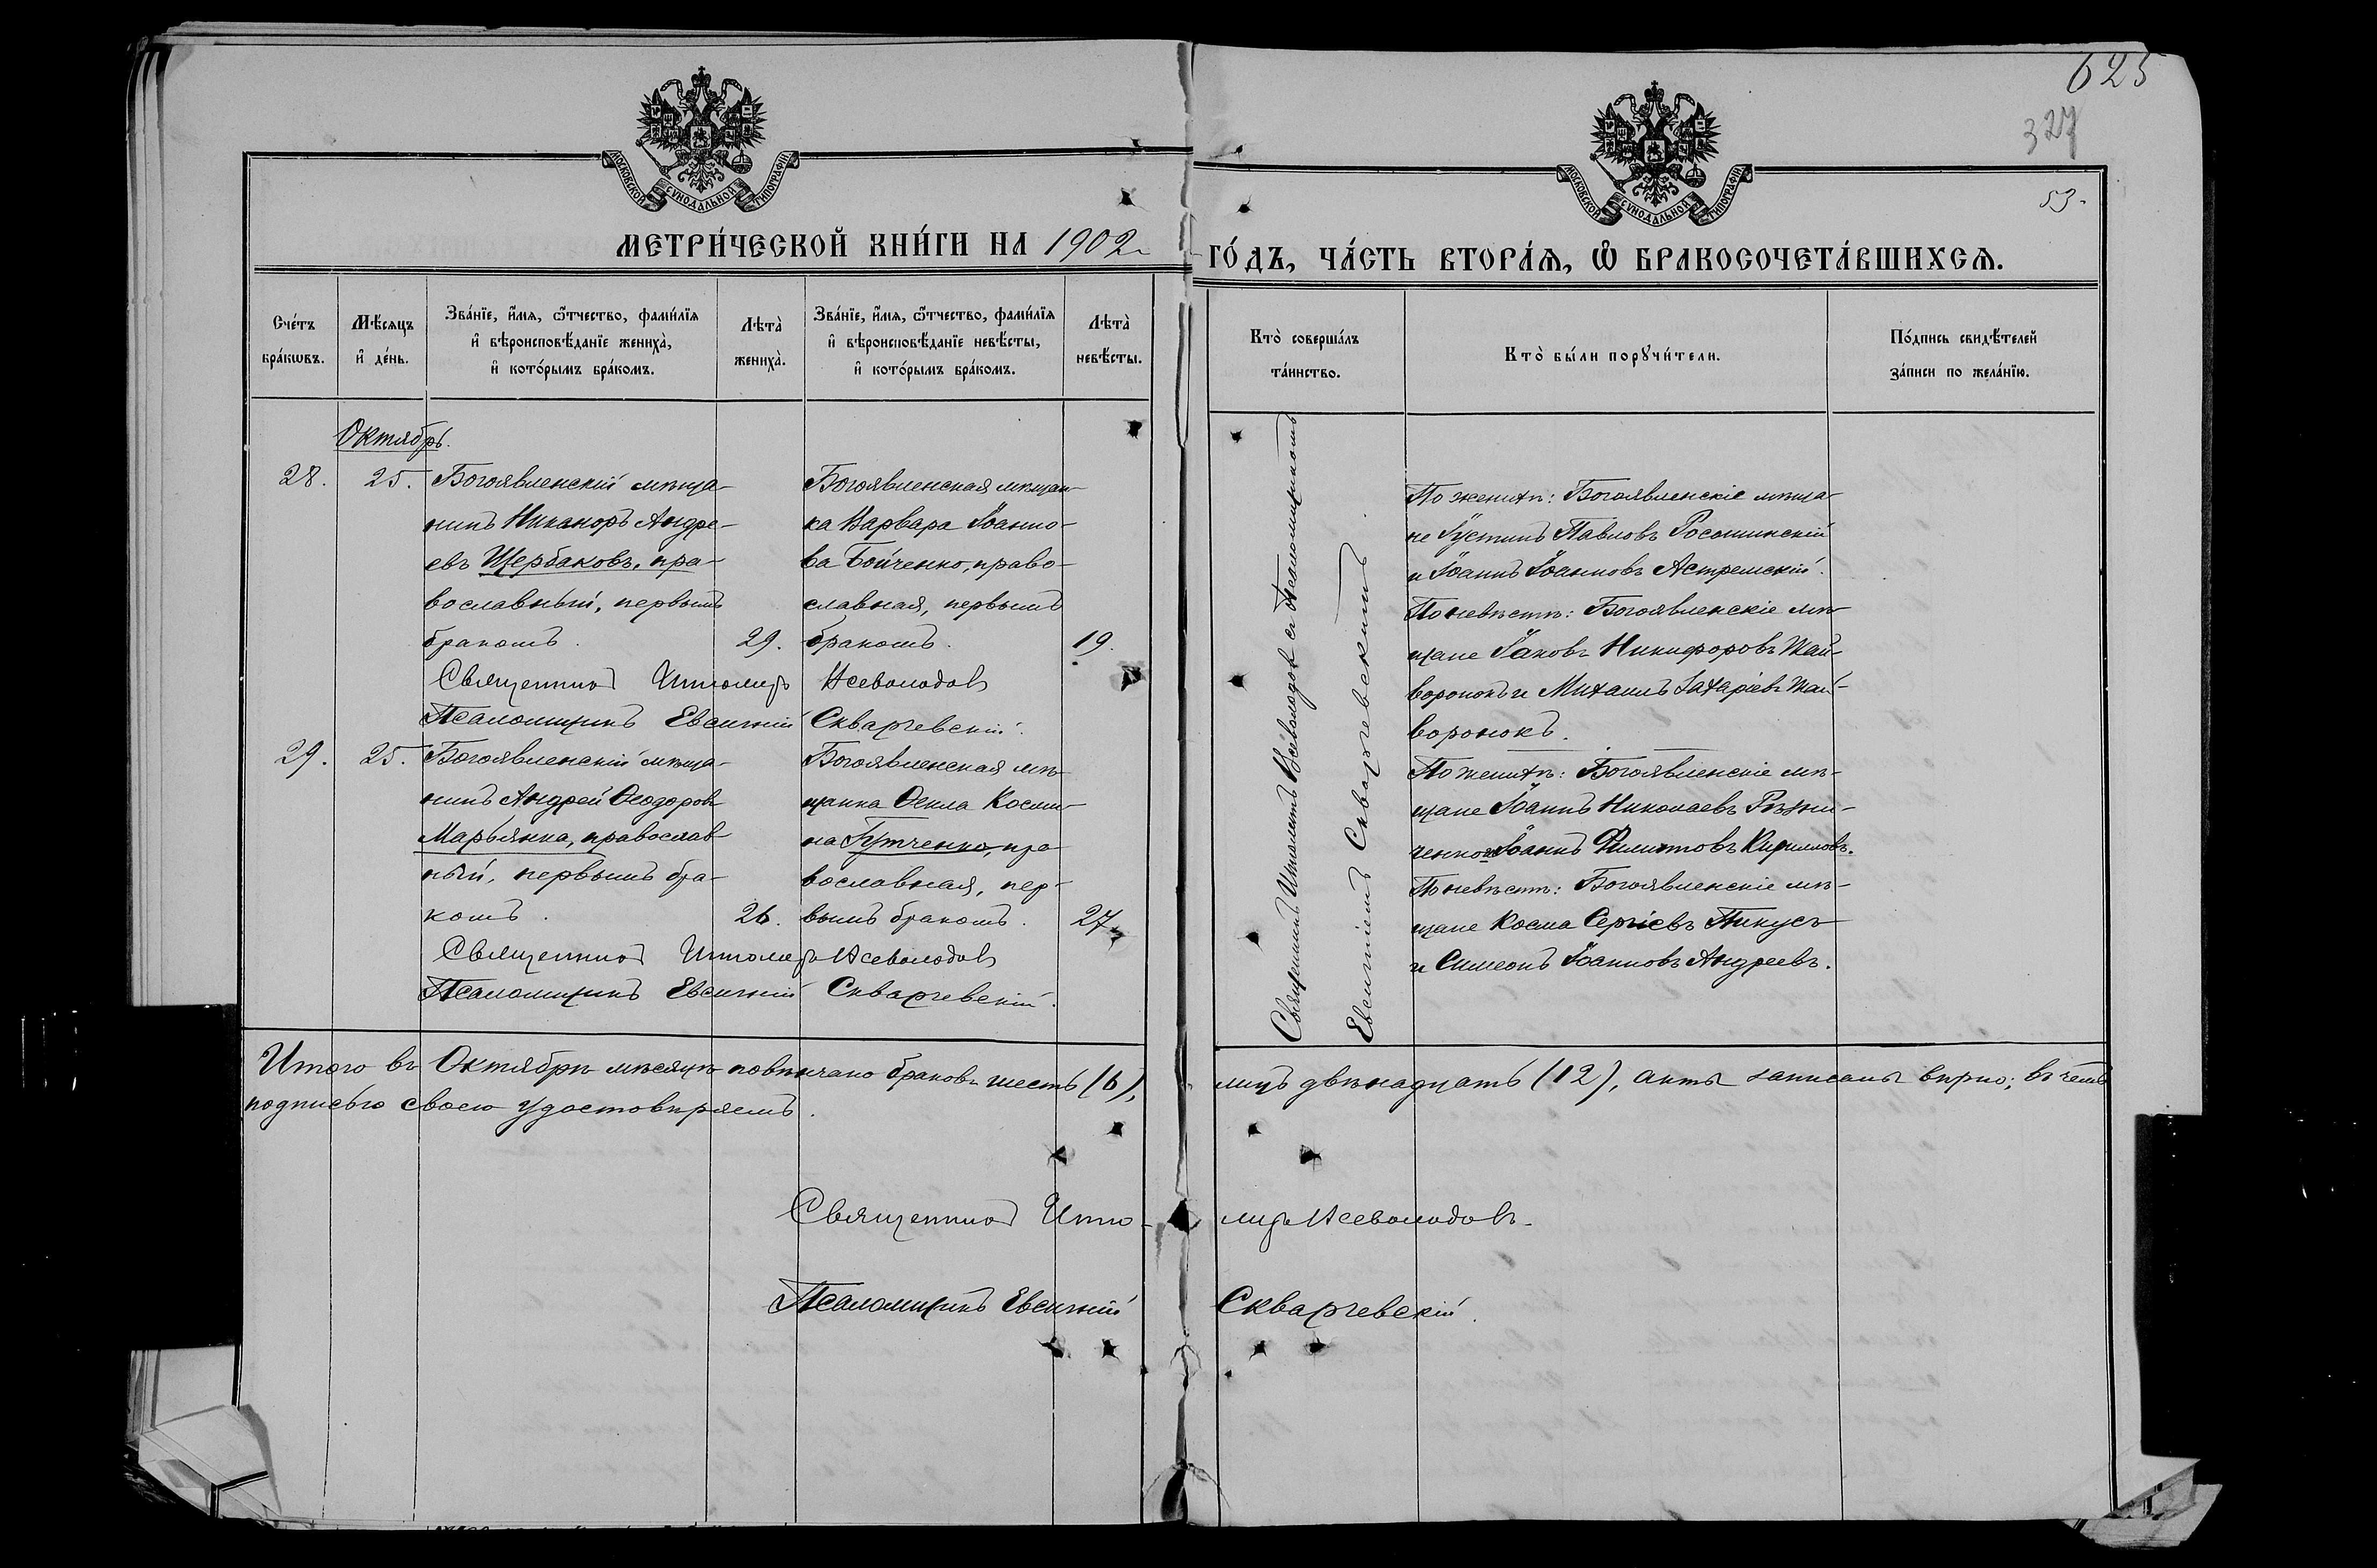 625
327
53.
МОСКОВСКОЙ СѴНОДАЛЬНОЙ ТИПОГРАФІИ.
МОСКОВСКОЙ СѴНОДАЛЬНОЙ ТИПОГРАФІИ.
МЕТРИ́ЧЕСКОЙ КНИ́ГИ НА 1902 ГО́ДЪ, ЧА́СТЬ ВТОРА́Я, Ѡ БРАКОСОЧЕТА́ВШИХСЯ.
Сче́тъ
бра́кѡвъ.
Мѣ́сяцъ
и҆ де́нь.
Зва́нїе, и҆́мя, ѻ҆́тчество, фами́лїя
и҆ вѣроисповѣ́данїе жениха̀,
и҆ кото́рымъ бра́комъ.
Лѣта̀
жениха̀.
Зва́нїе, и҆́мя, ѻ҆́тчество, фами́лїя
и҆ вѣроисповѣ́данїе невѣ́сты,
и҆ кото́рымъ бра́комъ.
Лѣта̀
невѣ́сты.
Кто̀ соверша́лъ
та́инство.
Кто̀ бы́ли порꙋчи́тели.
По́дпись свидѣ́телей
за́писи по жела́нїю.
Октябрь.
28.
25.
Богоявленскій мѣща-
нинъ Никаноръ Андре-
евъ Щербаковъ, пра-
вославный, первымъ
бракомъ.
29.
Богоявленская мѣщан-
ка Варвара Іоанно-
ва Бойченко, право-
славная, первымъ
бракомъ.
19.
Священникъ Всеволодовъ
Псаломщикъ Евсигній Скваржевскій.
По женихѣ: Богоявленскіе мѣща-
не Іустинъ Павловъ Росошинскій
и Іоаннъ Іоанновъ Астремскій.
По невѣстѣ: Богоявленскіе мѣ-
щане Іаковъ Никифоровъ Жай-
воронокъ и Михаилъ Захаріевъ Жай-
воронокъ.
29.
25.
Богоявленскій мѣща-
нинъ Андрей Ѳеодоровъ
Марьянка, православ-
ный, первымъ бра-
комъ.
26.
Богоявленская мѣ-
щанка Ѳекла Косми-
на Гутченко, пра-
вославная, пер-
вымъ бракомъ.
27.
Священникъ Всеволодовъ
Псаломщикъ Евсигній Скваржевскій.
По женихѣ: Богоявленскіе мѣ-
щане Іоаннъ Николаевъ
Іоаннъ Филиповъ Кирилловъ.
По невѣстѣ: Богоявленскіе мѣ-
щане Косма Сергіевъ Пикусъ
и Симеонъ Іоанновъ Андреевъ.
Священникъ Всеволодовъ съ Псаломщикомъ
Евсигніемъ Скваржевскимъ.
Итого въ Октябрѣ мѣсяцѣ повѣнчано браковъ шесть (6), лицъ двѣнадцать (12), актъ записанъ вѣрно; въ чемъ
подписью своею удостовѣряемъ.
Священникъ Всеволодовъ
Псаломщикъ Евсигній Скваржевскій.